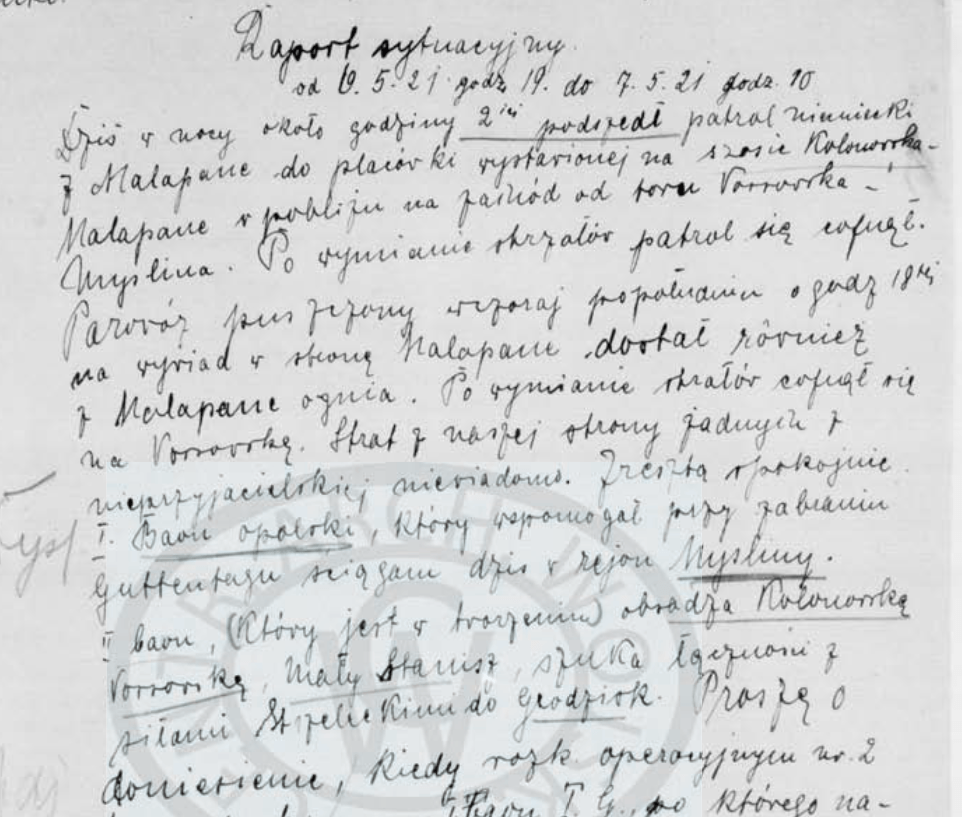 Raport sytuacyjny.
od 6.5.21 godz 19. do 7.5.21 godz. 10
Dziś w nocy około godziny 2iej podszedł patrol niemiecki
z Malapane do placówki wystawionej na szosie Kolonowska-
Malapane w pobliżu na zachód od toru Vossowska -
Myslina. Po wymianie strzałów patrol się cofnął.
Parowóz puszczony wczoraj popołudniu o godz 18tej
na wywiad w stronę Malapane dostał również
z Malapane ognia. Po wymianie strzałów cofnął się
na Vossowskę. Strat z naszej strony żadnych z
nieprzyjacielskiej niewiadomo. Zresztą spokojnie.
I. Baon opolski, który wspomogał przy zabraniu
Guttentagu ściągam dziś w rejon Mysliny.
II baon, (który jest w tworzeniu) obsadza Kolonowskę
Vossowskę, Mały Stanisz, szuka łączności z
siłami Strzeleckimi do Grodzisk. Proszę o
doniesienie, kiedy rozk. operacyjnym nr. 2
Baon T. G., po którego na-